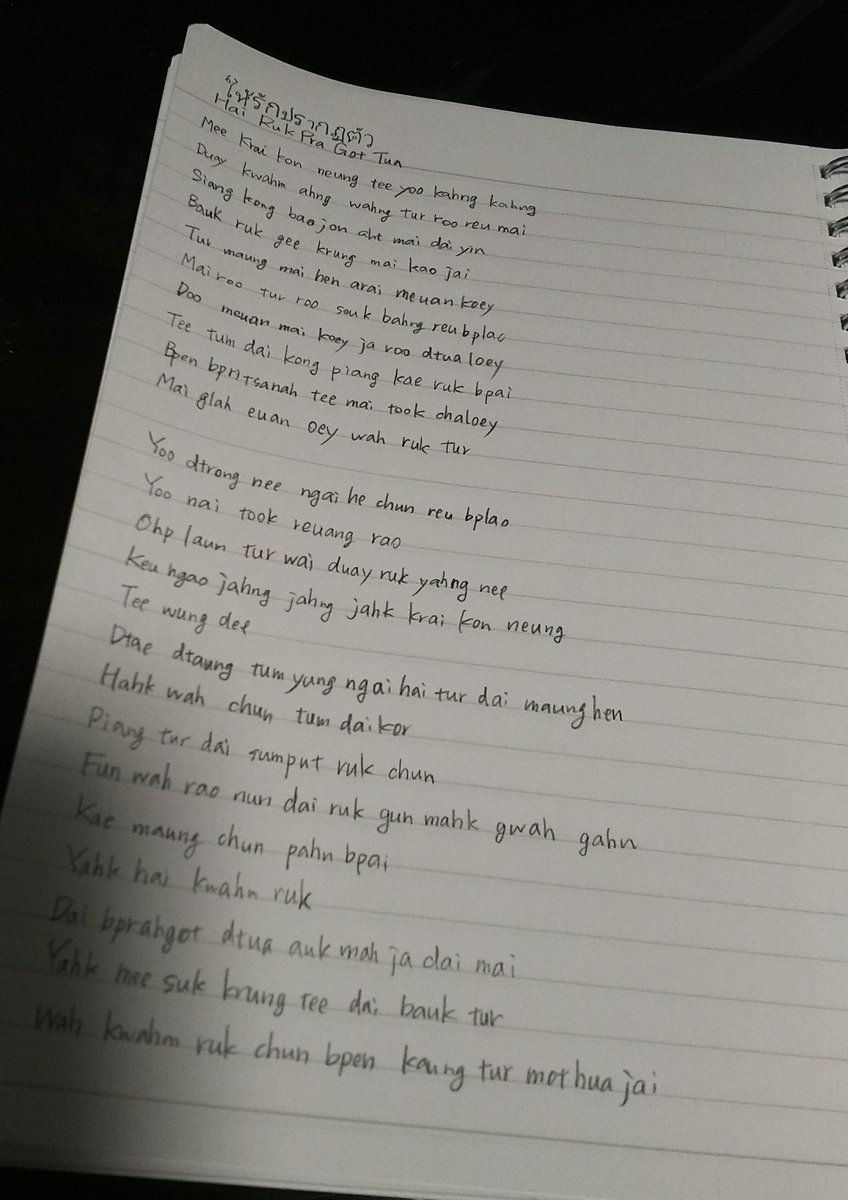 ให้รักปรากฏตัว
Hai Ruk Pra Got Tua
Mee Krai kon neung tee yoo kahng kahng
Duay kwahm ahng wahng tur roo reu mai
Siang kong bao jon aht mai dai yin
Bauk ruk gee krung mai kao jai
Tur maung mai hen arai meuan koey
Mai roo tur roo seuk bahng reu bplao
Doo meuan mai koey ja roo dtua loey
Tee tum dai kong piang kae ruk bpai
Bpen bpritsanah tee mai took chaloey
Mai glah euan oey wah ruk tur
Yoo dtrong nee ngai he chun reu bplao
Yoo nai took reuang rao
Ohp laun tur wai duay ruk yahng nee
Keu ngao jahng jahng jahk krai kon neung
Tee wung dee
Dtae dtaung tum yung ngai hai tur dai maung hen
Hahk wah chun tum dai kor
Piang tur dai sumput ruk chun
Fun wah rao nun dai ruk gun mahk gwah gahn
Kae maung chun pahn bpai
Yahk hai kwahm ruk
Dai bprahgot dtua auk mah ja dai mai
Yahk mee suk krung tee dai bauk tur
Wah kwahm ruk chun bpen kaung tur mot hua jai